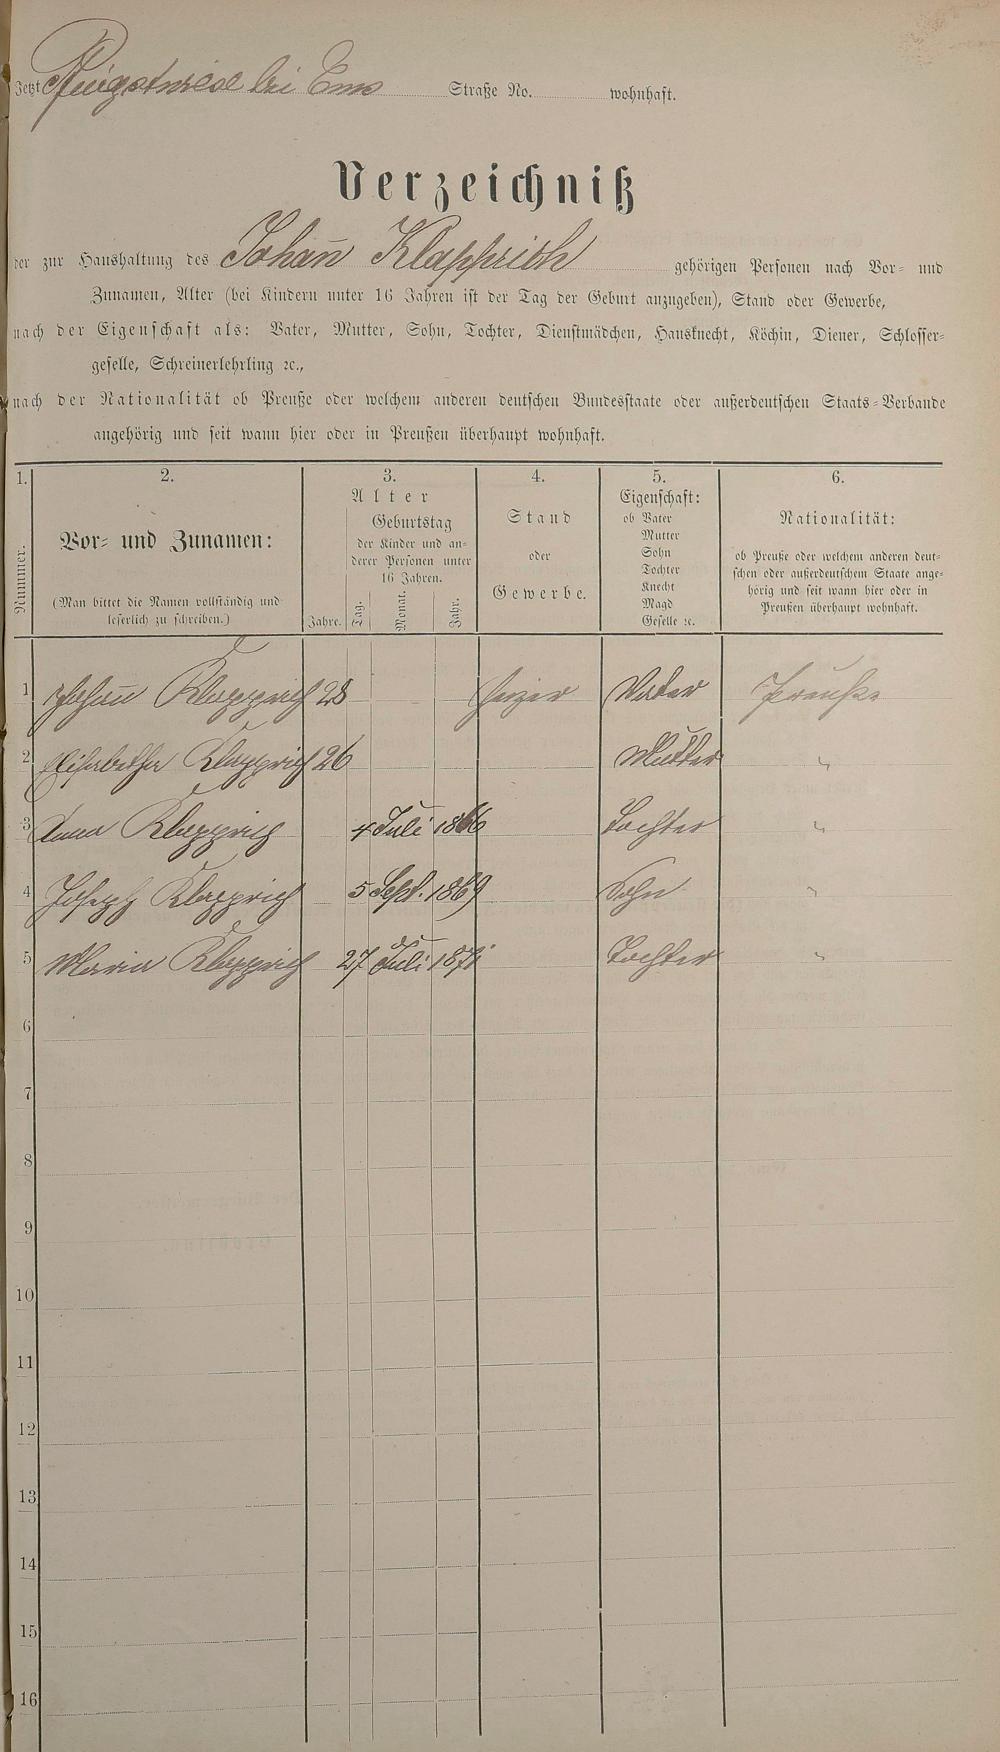 Jetzt Pfingstwiese bei Ems Straße No. wohnhaft.
Verzeichniß
der zur Haushaltung des Johan̄ Klapprich gehörigen Personen nach Vor- und
Zunamen, Alter (bei Kindern unter 16 Jahren ist der Tag der Geburt anzugeben), Stand oder Gewerbe,
nach der Eigenschaft als: Vater, Mutter, Sohn, Tochter, Dienstmädchen, Hausknecht, Köchin, Diener, Schlosser-
geselle, Schreinerlehrling ꝛc.,
nach der Nationalität ob Preuße oder welchem anderen deutschen Bundesstaate oder außerdeutschen Staats-Verbande
angehörig und seit wann hier oder in Preußen überhaupt wohnhaft.
1. 2. 3. 4. 5. 6.
Nummer.
Vor- und Zunamen:
(Man bittet die Namen vollständig und
leserlich zu schreiben.)
Alter
Jahre.
Geburtstag
der Kinder und an-
derer Personen unter
16 Jahren.
Tag. Monat. Jahr.
Stand
oder
Gewerbe.
Eigenschaft:
ob Vater
Mutter
Sohn
Tochter
Knecht
Magd
Geselle ꝛc.
Nationalität:
ob Preuße oder welchem anderen deut-
schen oder außerdeutschem Staate ange-
hörig und seit wann hier oder in
Preußen überhaupt wohnhaft.
1 Johan̄ Klapprich 28 Heizer Vater Preuße
2 Elisabetha Klapprich 26 Mutter "
3 Anna Klapprich 4 Juli 1866 Tochter "
4 Joseph Klapprich 5 Sept. 1869 Sohn "
5 Maria Klapprich 27 Juli 1871 Tochter "
6
7
8
9
10
11
12
13
14
15
16